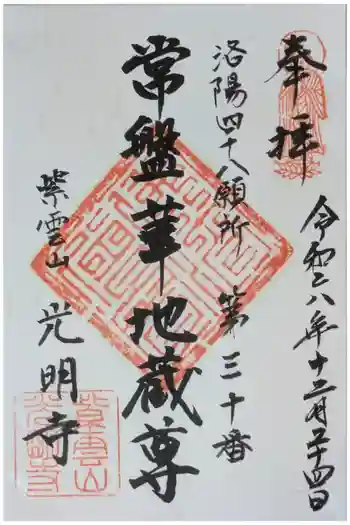 奉拝
令和六年十二月二十四日
洛陽四十八願所　第三十番
常盤華地蔵尊
紫雲山　光明寺
紫雲山
光明寺